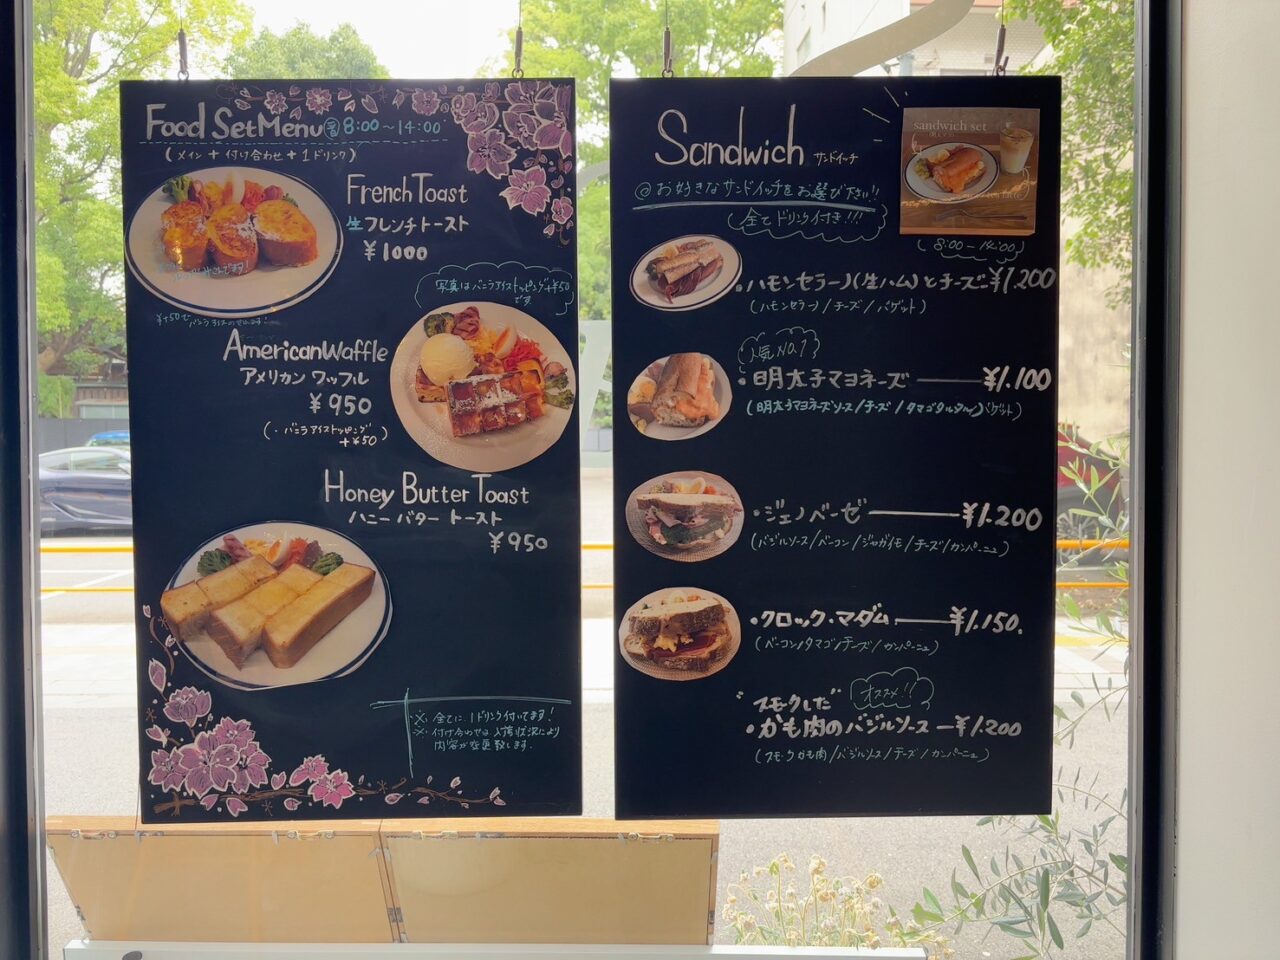 Food SetMenu 8:00〜14:00
(メイン + 付け合わせ + 1ドリンク)
FrenchToast
生フレンチトースト
¥1000
¥+50で
写真はバニラアイストッピング+¥50
です
AmericanWaffle
アメリカン ワッフル
¥950
(・バニラアイストッピング
+¥50)
Honey Butter Toast
ハニー バター トースト
¥950
※・全てに1ドリンク付いてます!
※・付け合わせは入荷状況により
内容が変更致します.
Sandwich サンドイッチ
@お好きなサンドイッチをお選び下さい!!
全てドリンク付き!!!
sandwich set
(8:00-14:00)
・ハモンセラーノ(生ハム)とチーズ-¥1.200
(ハモンセラーノ/チーズ/バゲット)
人気No.1
・明太子マヨネーズ ―¥1.100
(明太子マヨネーズソース/チーズ/タマゴタルタル/バゲット)
・ジェノベーゼ―¥1.200
(バジルソース/ベーコン/ジャガイモ/チーズ/カンパーニュ)
・クロック・マダム―¥1.150.
(ベーコン/タマゴ/チーズ/カンパーニュ)
"スモークした" オススメ!!
・かも肉のバジルソース―¥1.200
(スモークかも肉/バジルソース/チーズ/カンパーニュ)